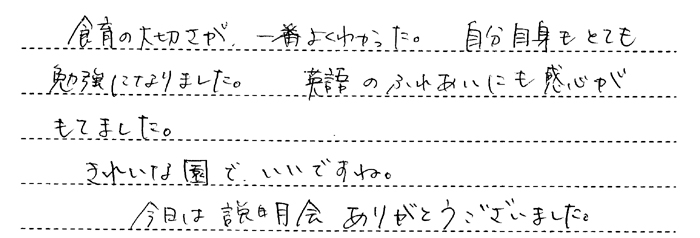 食育の大切さが、一番よくわかった。 自分自身もとても
勉強になりました。 英語のふれあいにも感心が
もてました。
きれいな園で、いいですね。
今日は説明会ありがとうございました。